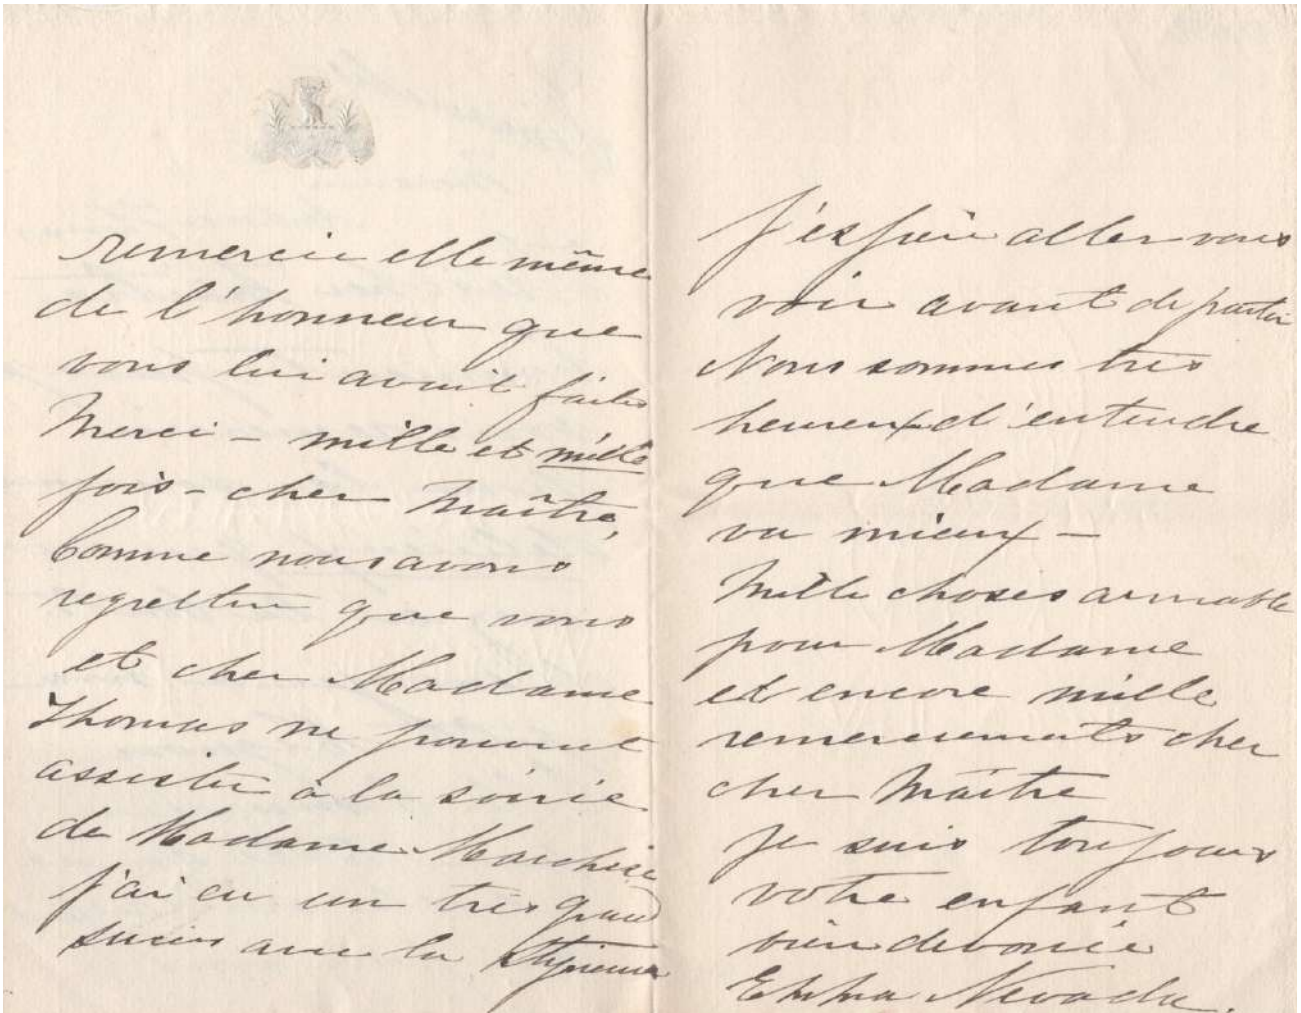 remercie elle même
de l'honneur que
vous lui avait faites
Merci - mille et mille
fois - cher Maître,
Comme nous avons
regretter que vous
et cher Madame
Thomas ne pouvait
assister à la soirée
de Madame Marchesi
j'ai eu un très grand
succès avec la Styrienne
J'espère aller vous
voir avant de partir
Nous sommes très
heureux d'entendre
que Madame
va mieux -
Mille choses aimable
pour Madame
et encore mille
remerciements cher
cher Maître
je suis toujours
votre enfant
bien devouée
Emma Nevada.